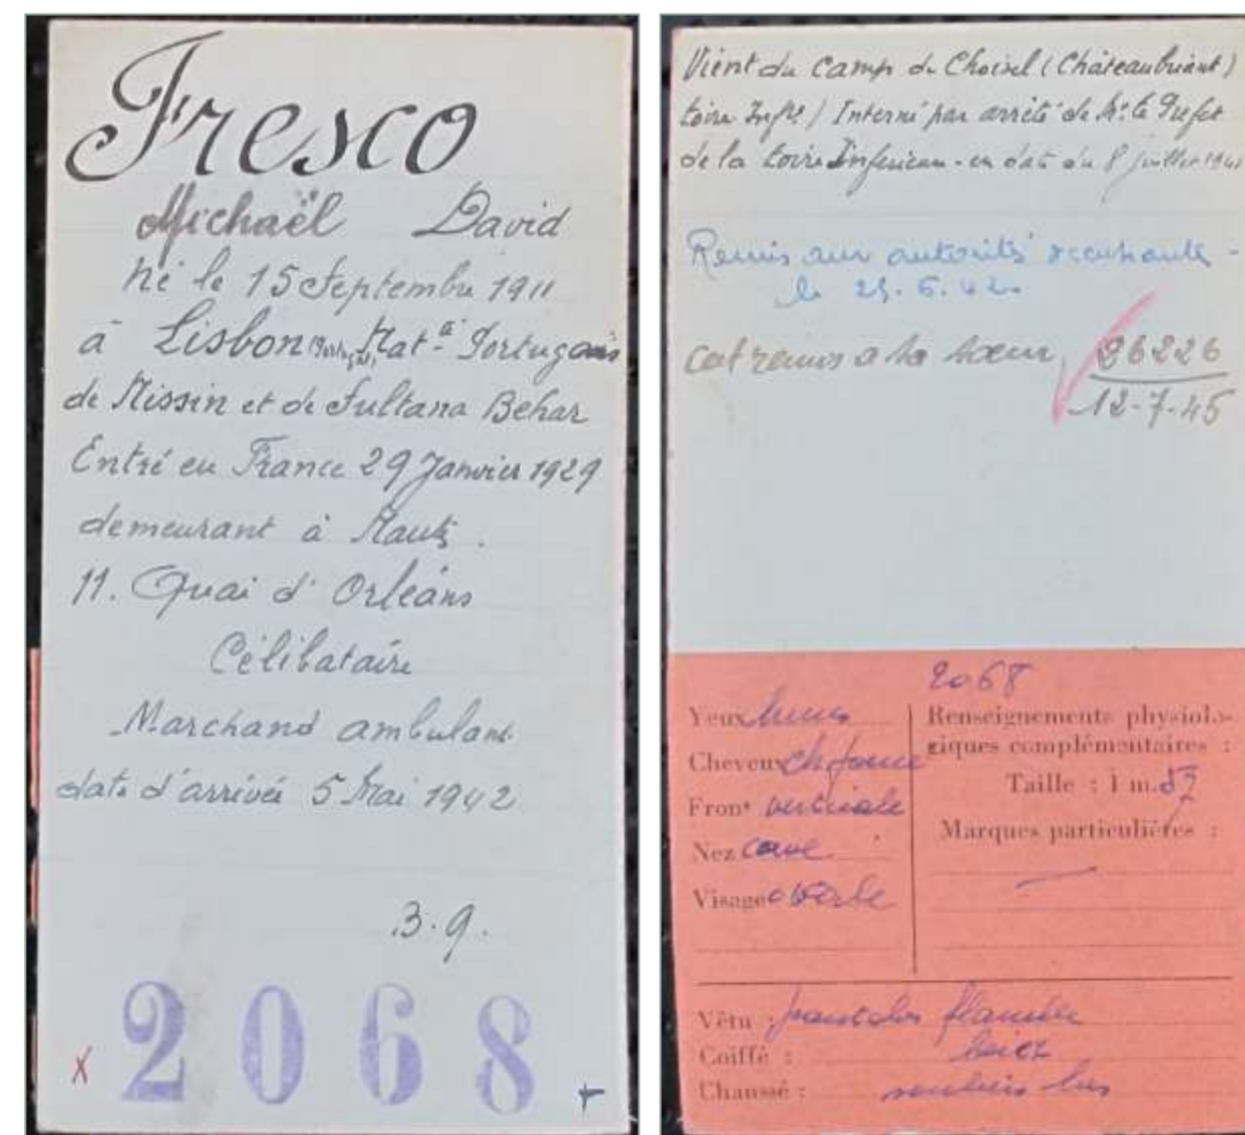 Fresco
Michaël David
né le 15 Septembre 1911
à Lisbon (Portugal) Nat.té Portugais
de Nissin et de Sultana Behar
Entré en France 29 Janvier 1929
demeurant à Nantes.
11. Quai d'Orléans
Célibataire
Marchand ambulant
date d'arrivée 5 Mai 1942
3.9.
X 2068 +
Vient du Camp de Choisel (Châteaubriant)
Loire Infre) Interné par arrêté de Mr. le Préfet
de la Loire Inférieure - en date du 8 juillet 1941
Remis aux autorités occupantes -
le 25.6.42
remis a la sœur 26226
12-7-45
2068
Yeux
Cheveux
Front verticale
Nez cave
Visage ovale
Renseignements physiolo-
giques complémentaires :
Taille : 1 m. 57
Marques particulières :
Vêtu : pantalon flanelle
Coiffé :
Chaussé : souliers bas